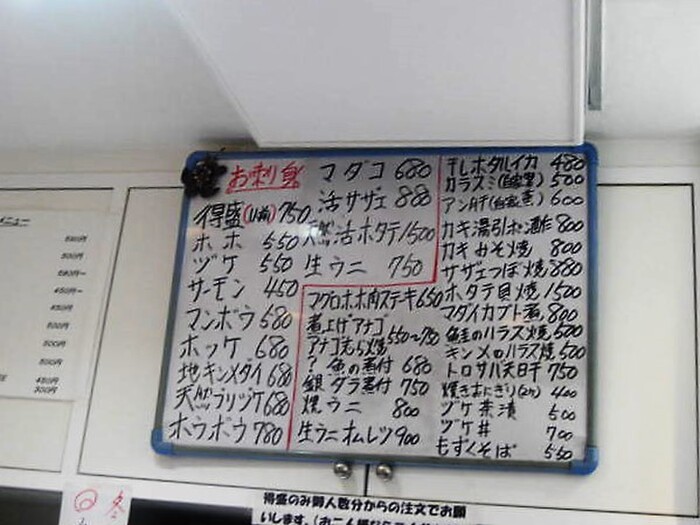 お刺身
得盛(1人前) 750
ホホ 550
ヅケ 550
サーモン 450
マンボウ 680
ホッケ 680
地キンメダイ 680
天然ブリヅケ 680
ホウボウ 780
マダコ 680
活サザエ 880
天然活ホタテ 1500
生ウニ 750
マグロホホ肉ステキ 650
煮上げアナゴ
アナゴ白焼 550〜750
?魚の煮付 680
銀ダラ煮付 750
焼ウニ 800
生ウニオムレツ 900
干しホタルイカ 480
カラスミ(自家製) 500
アン肝(自家蒸) 600
カキ湯引ポン酢 800
カキみそ焼 800
サザエつぼ焼 880
ホタテ貝焼 1500
マダイカブト煮 800
鮭のハラス焼 500
キンメのハラス焼 500
トロサバ天日干 750
焼きおにぎり(2ヶ) 400
ヅケ茶漬 500
ヅケ丼 700
もずくそば 550
メニュー
550円
500円
450円〜
450円
500円
500円
500円
450円
300円
冬
得盛のみ御人数分からの注文でお願
いします。